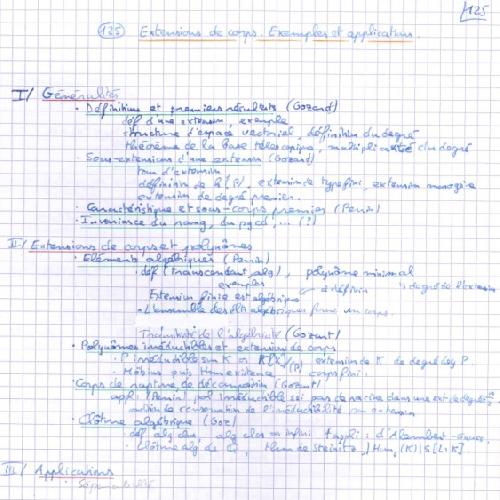 125
(125) Extensions de corps. Exemples et applications.
I/ Généralités
• Définitions et premiers résultats (Gozard)
déf d'une extension, exemple
structure d'espace vectoriel, définition du degré
théorème de la base télescopique, multiplicativité du degré
• Sous-extensions d'une extension (Gozard)
tour d'extension
définition de k(S), extension de type fini, extension monogène
extension de degré premier.
• Caractéristique et sous-corps premier (Perrin)
• Invariance du rang, du pgcd, ... (?)
II/ Extensions de corps et polynômes
• Eléments algébriques (Perrin)
déf (transcendant, alg), polynôme minimal
exemples
Extension finie est algébrique
L'ensemble des élts algébriques forme un corps.
Transitivité de l'algébricité (Gozard)
• Polynômes irréductibles et extension de corps
P irréductible sur K => K[X]/(P) extension de K de degré deg P
Möbius puis existence corps finis.
• Corps de rupture, de décomposition (Gozard)
appli (Perrin) pol irréductible ssi pas de racine dans une ext de degré
• Clôture algébrique (Goz)
déf alg clos, alg clos => infini appli : d'Alembert-Gauss.
Clôture alg de thm de Steinitz
III/ Applications